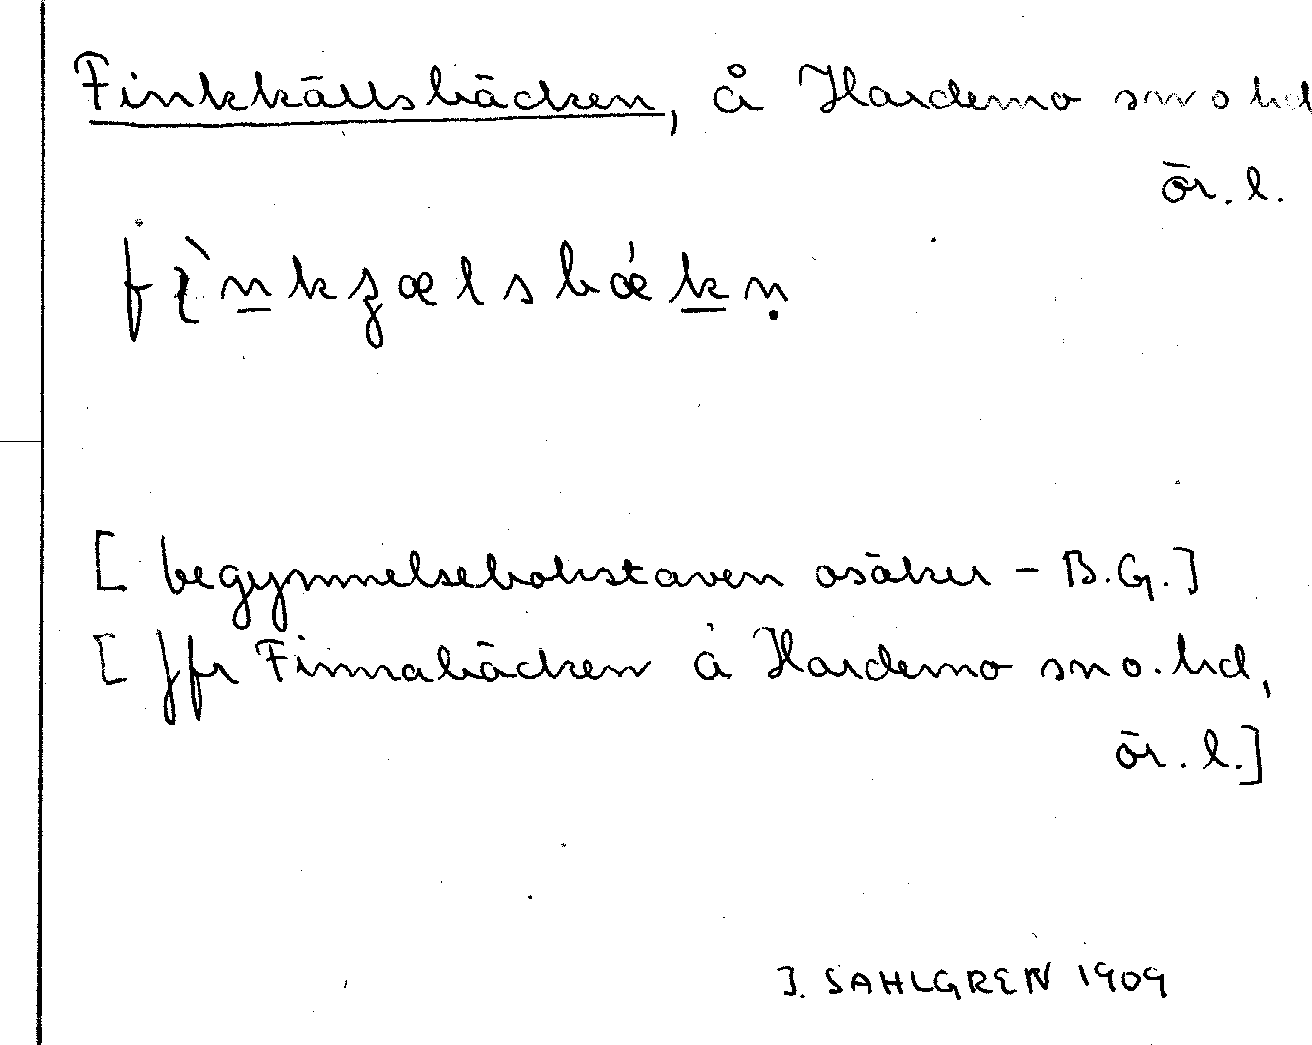 Finkkällsbäcken, å Hardemo sn o hd
ör. l.
[ begynnelsebokstaven osäker – B.G.]
[ Jfr Finnabäcken å Hardemo sn o. hd,
ör. l.]
J. SAHLGREN 1909